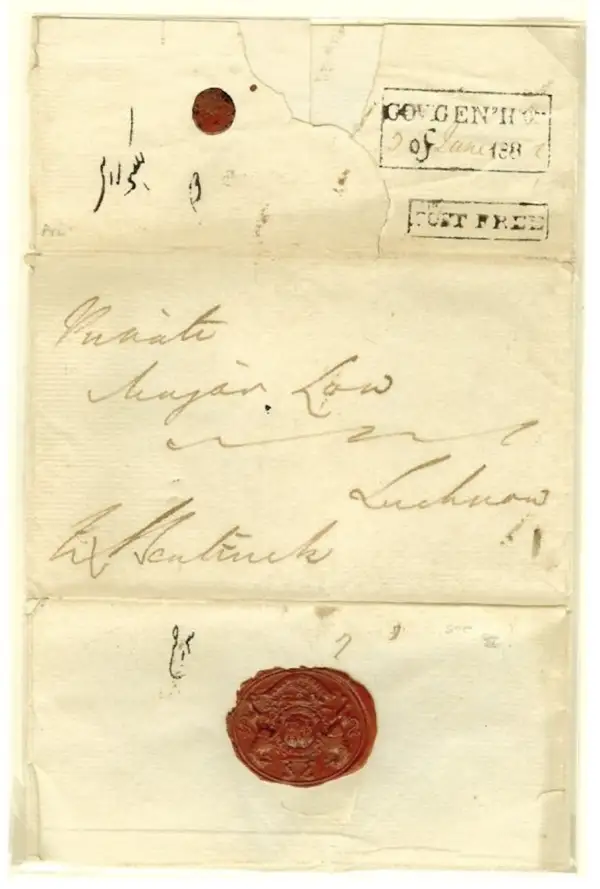 GOV. GEN'
of June 183
POST FREE
Private
Major Low
Lucknow
W Bentinck